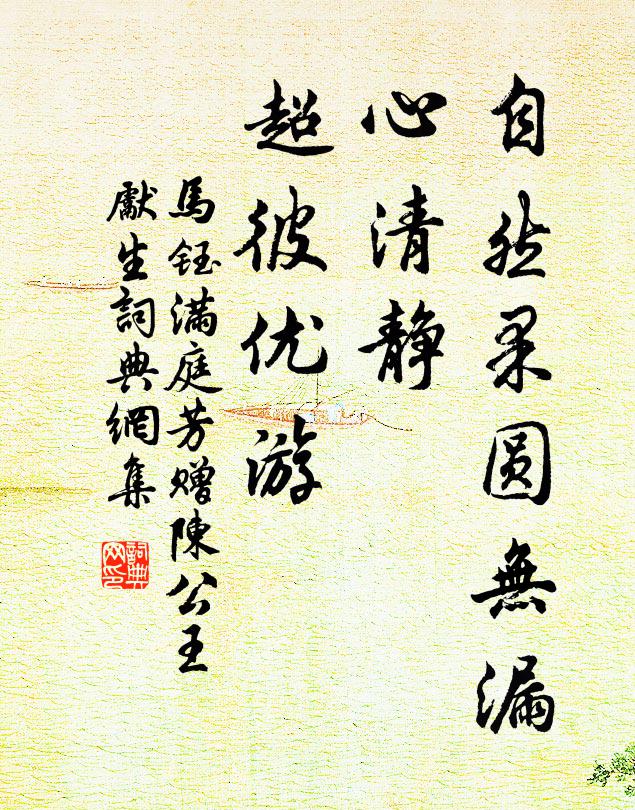 自然果圆無漏
心清静
超彼优游
馬鈺满庭芳赠陳公王
獻生詞典網集
詞典
网印